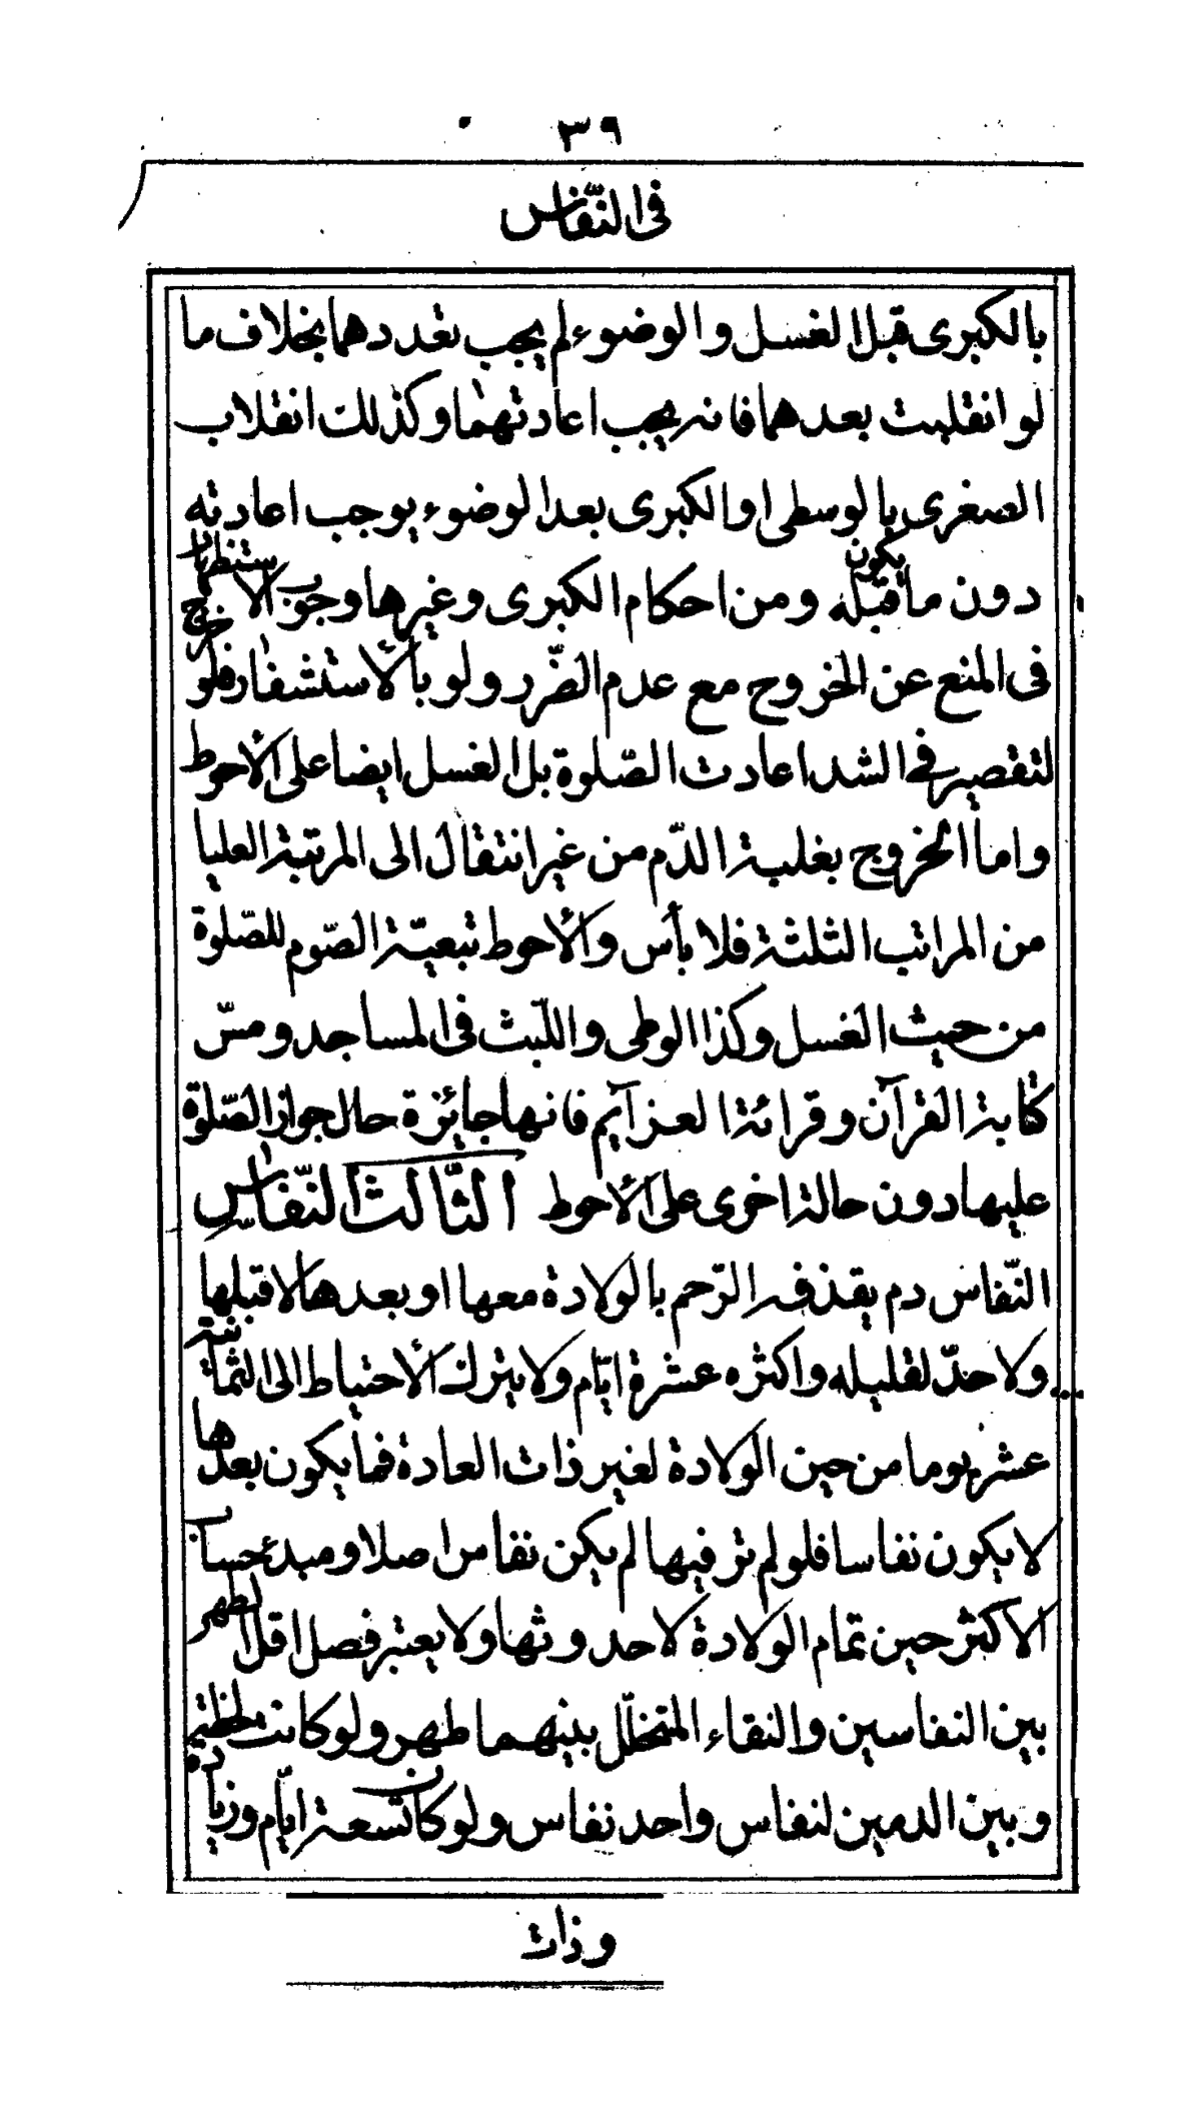 ٣٩
فى النّفاس
بالكبرى قبل الغسل والوضوء لم يجب تعددهما بخلاف ما
لو انقلبت بعدهما فانه يجب اعادتهما وكذلك انقلاب
الصغرى بالوسطى او الكبرى بعد الوضوء يوجب اعادته
دون ما يكون قبله ومن احكام الكبرى وغيرها وجوب الاستظهار
فى المنع عن الخروج مع عدم الضّرر ولو بالأستشفار فلو خرج
لتقصير فى الشد اعادت الصّلوة بل الغسل ايضا على الأحوط
واما الخروج بغلبة الدّم من غير انتقال الى المرتبة العليا
من المراتب الثلثة فلا بأس والأحوط تبعيّة الصّوم للصّلوة
من حيث الغسل وكذا الوطى واللّبث فى المساجد ومسّ
كتابة القرآن وقرائة العزآيم فانها جايزة حال جواز الصّلوة
عليها دون حالة اخرى على الأحوط الثّالث النّفاس
النّفاس دم يقذفه الرّحم بالولادة معها او بعدها لا قبلها
ولا حدّ لقليله واكثره عشرة ايّام ولا يترك الأحتياط الى الثمانية
عشر يوما من حين الولادة لغير ذات العادة فما يكون بعدها
لا يكون نفاسا فلو لم تر فيها لم يكن نفاس اصلا ومبدء حساب
الاكثر حين تمام الولادة لا حدوثها ولا يعتبر فصل اقل الطهر
بين النفاسين والنقاء المتخلّل بينهما طهر ولو كانت لحظة
وبين الدمين لنفاس واحد نفاس ولو كان تسعة ايّام وزيادة
وذات